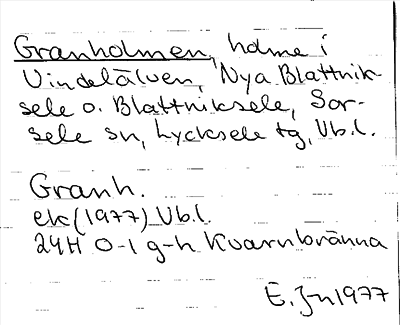 Granholmen, holme i
Vindelälven, Nya Blattnik-
sele o. Blattniksele, Sor-
sele sn, Lycksele tg, Vb.l.
Granh.
ek(1977) Vb.l.
24H 0-1 g-h Kvarnbränna
E. Jn 1977